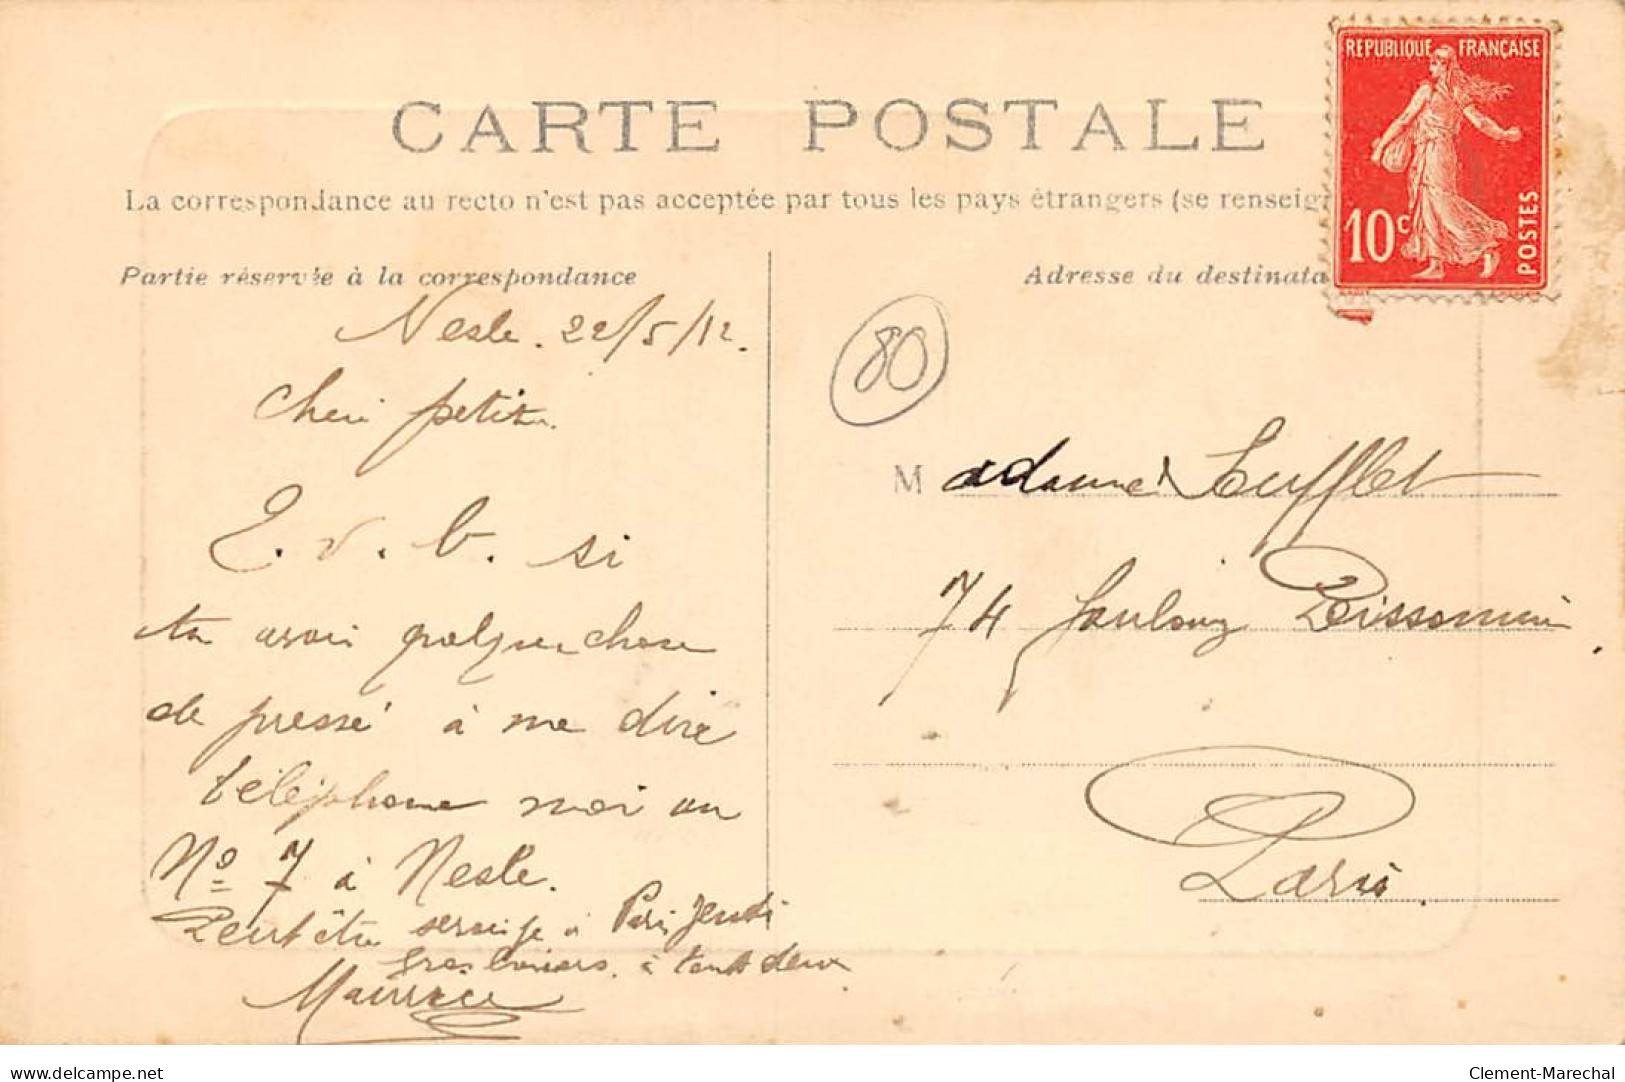 CARTE POSTALE
La correspondance au recto n'est pas acceptée par tous les pays étrangers (se renseig
Partie réservée à la correspondance
Nesle. 22/5/12.
Cheri petit
E. v. b. si
tu avais quelque chose
de pressé à me dire
téléphone moi au
Nº 7 à Nesle.
Peut être serai je à Paris jeudi
Gros baisers à tout deux
Maurice
Adresse du destinata
80
REPUBLIQUE FRANÇAISE
10c
POSTES
Madame Leufflet
74 Faubourg Poissonnière
Paris.
delcampe.net
Clement-Marechal